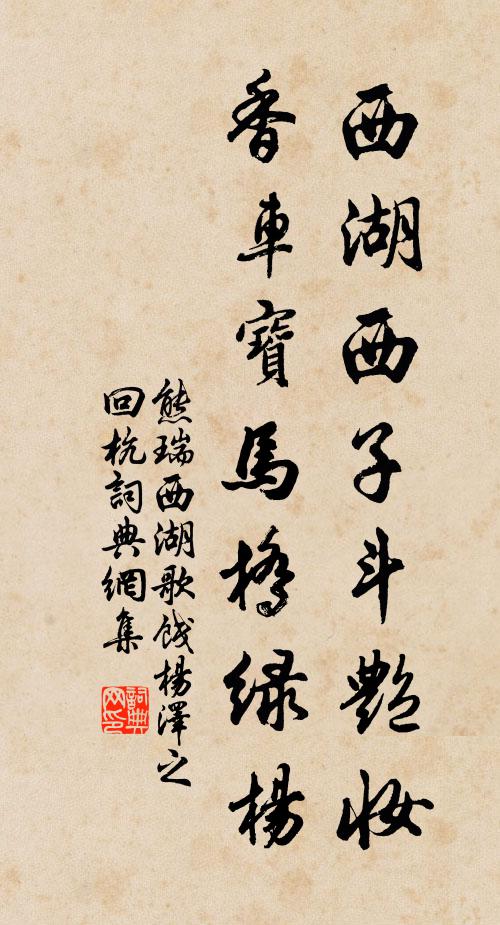 西湖西子斗艷妝
香車寶馬橋綠楊
熊瑞西湖歌餞楊澤之
回杭詞典網集
詞典网印